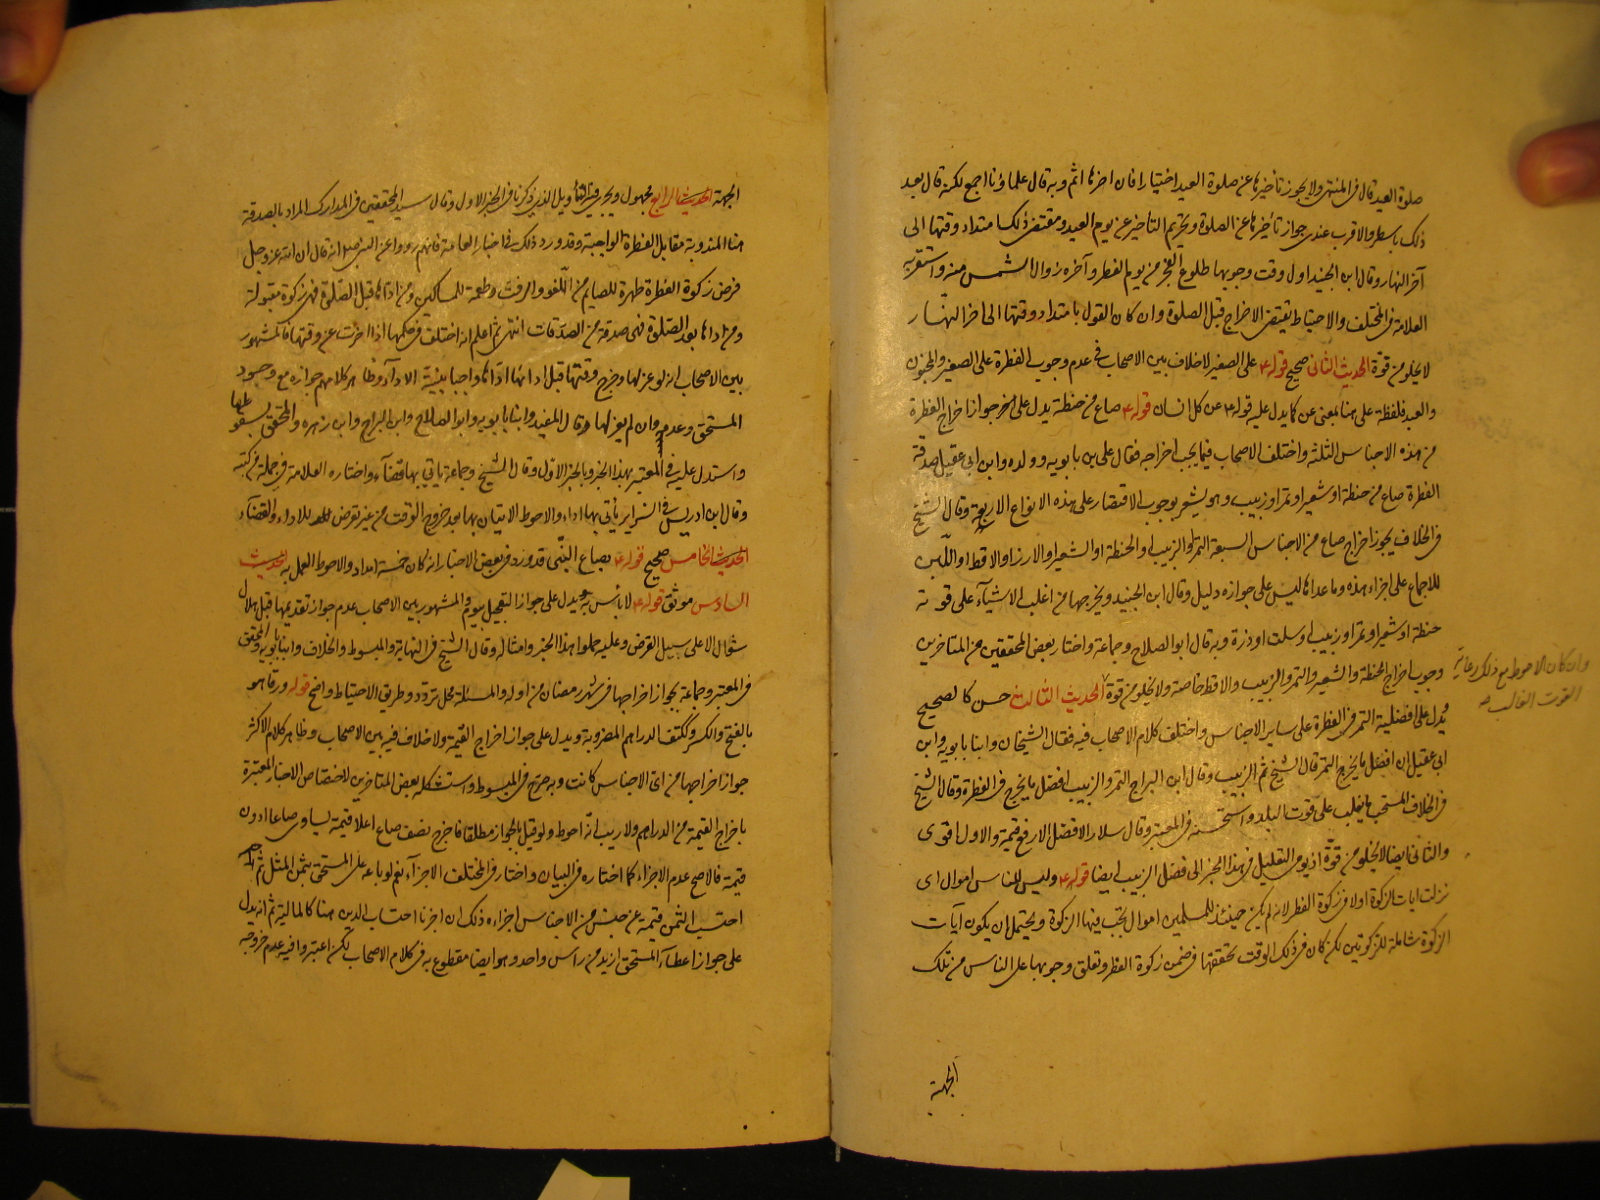 صلوة العيد قال فى المنتهى ولا يجوز تأخيرها عن صلوة العيد اختيارا فان اخرها اثم وبه قال علماؤنا اجمع لكنه قال بعد
ذلك باسطر والاقرب عندى جواز تأخيرها عن الصلوة وتحريم التأخير عن يوم العيد ومقتضى ذلك امتداد وقتها الى
آخر النهار وقال ابن الجنيد اول وقت وجوبها طلوع الفجر من يوم الفطر وآخره زوال الشمس منه واستقربه
العلامة فى المختلف والاحتياط يقتضى الاخراج قبل الصلوة وان كان القول بامتداد وقتها الى اخر النهار
لا يخلو من قوة الحديث الثانى صحيح قوله ع على الصغير لا خلاف بين الاصحاب فى عدم وجوب الفطرة على الصغير والمجنون
والعبد فلفظة على هنا بمعنى عن كما يدل عليه قوله ع عن كل انسان قوله ع صاع من حنطة يدل على جواز اخراج الفطرة
من هذه الاجناس الثلثة واختلف الاصحاب فيما يجب اخراجه فقال على بن بابويه وولده وابن ابى عقيل صدقة
الفطرة صاع من حنطة او شعير او تمر او زبيب وهو يشعر بوجوب الاقتصار على هذه الانواع الاربعة وقال الشيخ
فى الخلاف يجوز اخراج صاع من الاجناس السبعة التمر او الزبيب او الحنطة او الشعير او الارز او الاقط او اللبن
للاجماع على اجزاء هذه وما عداها ليس على جوازه دليل وقال ابن الجنيد ويخرجها من اغلب الاشياء على قوته
حنطة او شعير او تمر او زبيب او سلت او ذرة وبه قال ابو الصلاح وجماعة واختار بعض المحققين من المتاخرين
وجوب اخراج الحنطة والشعير والتمر والزبيب والاقط خاصة ولا يخلو من قوة الحديث الثالث حسن كالصحيح
وان كان الاحوط مع ذلك رعاية
القوت الغالب
ويدل على افضلية التمر فى الفطرة على ساير الاجناس واختلف كلام الاصحاب فيه فقال الشيخان وابنا بابويه وابن
ابى عقيل ان افضل ما يخرج التمر قال الشيخ ثم الزبيب وقال ابن البراج التمر والزبيب افضل ما يخرج فى الفطرة وقال الشيخ
فى الخلاف المستحب ما يغلب على قوت البلد واستحسنه فى المعتبر وقال سلار الافضل الارفع قيمة والاول اقوى
والثانى ايضا لا يخلو من قوة اذ يومى التعليل فى هذا الخبر الى فضل الزبيب ايضا قوله ع وليس للناس اموال اى
نزلت ايات الزكوة اولا فى زكوة الفطر لانه لم يكن حينئذ للمسلمين اموال تجب فيها الزكوة ويحتمل ان يكون آيات
الزكوة شاملة للزكوتين لكن كان فى ذلك الوقت تحققها فى ضمن زكوة الفطر وتعلق وجوبها على الناس من تلك
الجهة
الجهة الحديث الرابع مجهول ويجرى فيه التأويل الذى ذكرنا فى الخبر الاول وقال سيد المحققين فى المدارك المراد بالصدقة
هنا المندوبة مقابل الفطرة الواجبة وقد ورد ذلك فى اخبار العامة فانهم رووا عن النبى ص انه قال ان الله عز وجل
فرض زكوة الفطرة طهرة للصايم من اللغو والرفث وطعمة للمساكين ومن اداها قبل الصلوة فهى زكوة مقبولة
ومن اداها بعد الصلوة فهى صدقة من الصدقات انتهى ثم اعلم انه اختلف فى حكمها اذا اخرت عن وقتها فالمشهور
بين الاصحاب انه لو عزلها وخرج وقتها قبل ادائها اداها واجبا بنية الاداء وظاهر كلامهم جوازه مع وجود
المستحق وعدمه وان لم يعزلها قال المفيد وابنا بابويه وابو الصلاح وابن البراج وابن زهره والمحقق بسقوطها
واستدل عليه فى المعتبر بهذا الخبر وبالخبر الاول وقال الشيخ وجماعة يأتى بها قضآء واختاره العلامة فى جملة من كتبه
وقال ابن ادريس فى السراير يأتى بها اداء والاحوط الاتيان بها بعد خروج الوقت من غير تعرض للاداء والقضاء
الحديث الخامس صحيح قوله ع بصاع النبى قد ورد فى بعض الاخبار انه كان خمسة امداد والاحوط العمل به الحديث
السادس موثق قوله ع لا بأس به ويدل على جواز التعجيل بيوم والمشهور بين الاصحاب عدم جواز تقديمها قبل هلال
شوال الا على سبيل القرض وعليه حملوا هذا الخبر وامثاله وقال الشيخ فى النهاية والمبسوط والخلاف وابنا بابويه والمحقق
فى المعتبر وجماعة بجواز اخراجها فى شهر رمضان من اوله والمسئلة محل تردد وطريق الاحتياط واضح قوله ورقا هو
بالفتح والكسر وككتف الدراهم المضروبة ويدل على جواز اخراج القيمة ولا خلاف فيه بين الاصحاب وظاهر كلام الاكثر
جواز اخراجها من اى الاجناس كانت وبه صرح فى المبسوط واستشكله بعض المتاخرين لاختصاص الاخبار المعتبرة
باخراج القيمة من الدراهم ولا ريب انه احوط ولو قيل بالجواز مطلقا فاخرج نصف صاع اعلا قيمة يساوى صاعا ادون
قيمة فالاصح عدم الاجزاء كما اختاره فى البيان واختار فى المختلف الاجزآء نعم لو باعه على المستحق بثمن المثل ثم
احتسب الثمن قيمة عن جنس من الاجناس اجزاه ذلك ان اجزنا احتساب الدين هنا كالمالية ثم انه يدل
على جواز اعطآء المستحق ازيد من رأس واحد وهو ايضا مقطوع به فى كلام الاصحاب لكن اعتبروا فيه عدم خروجه